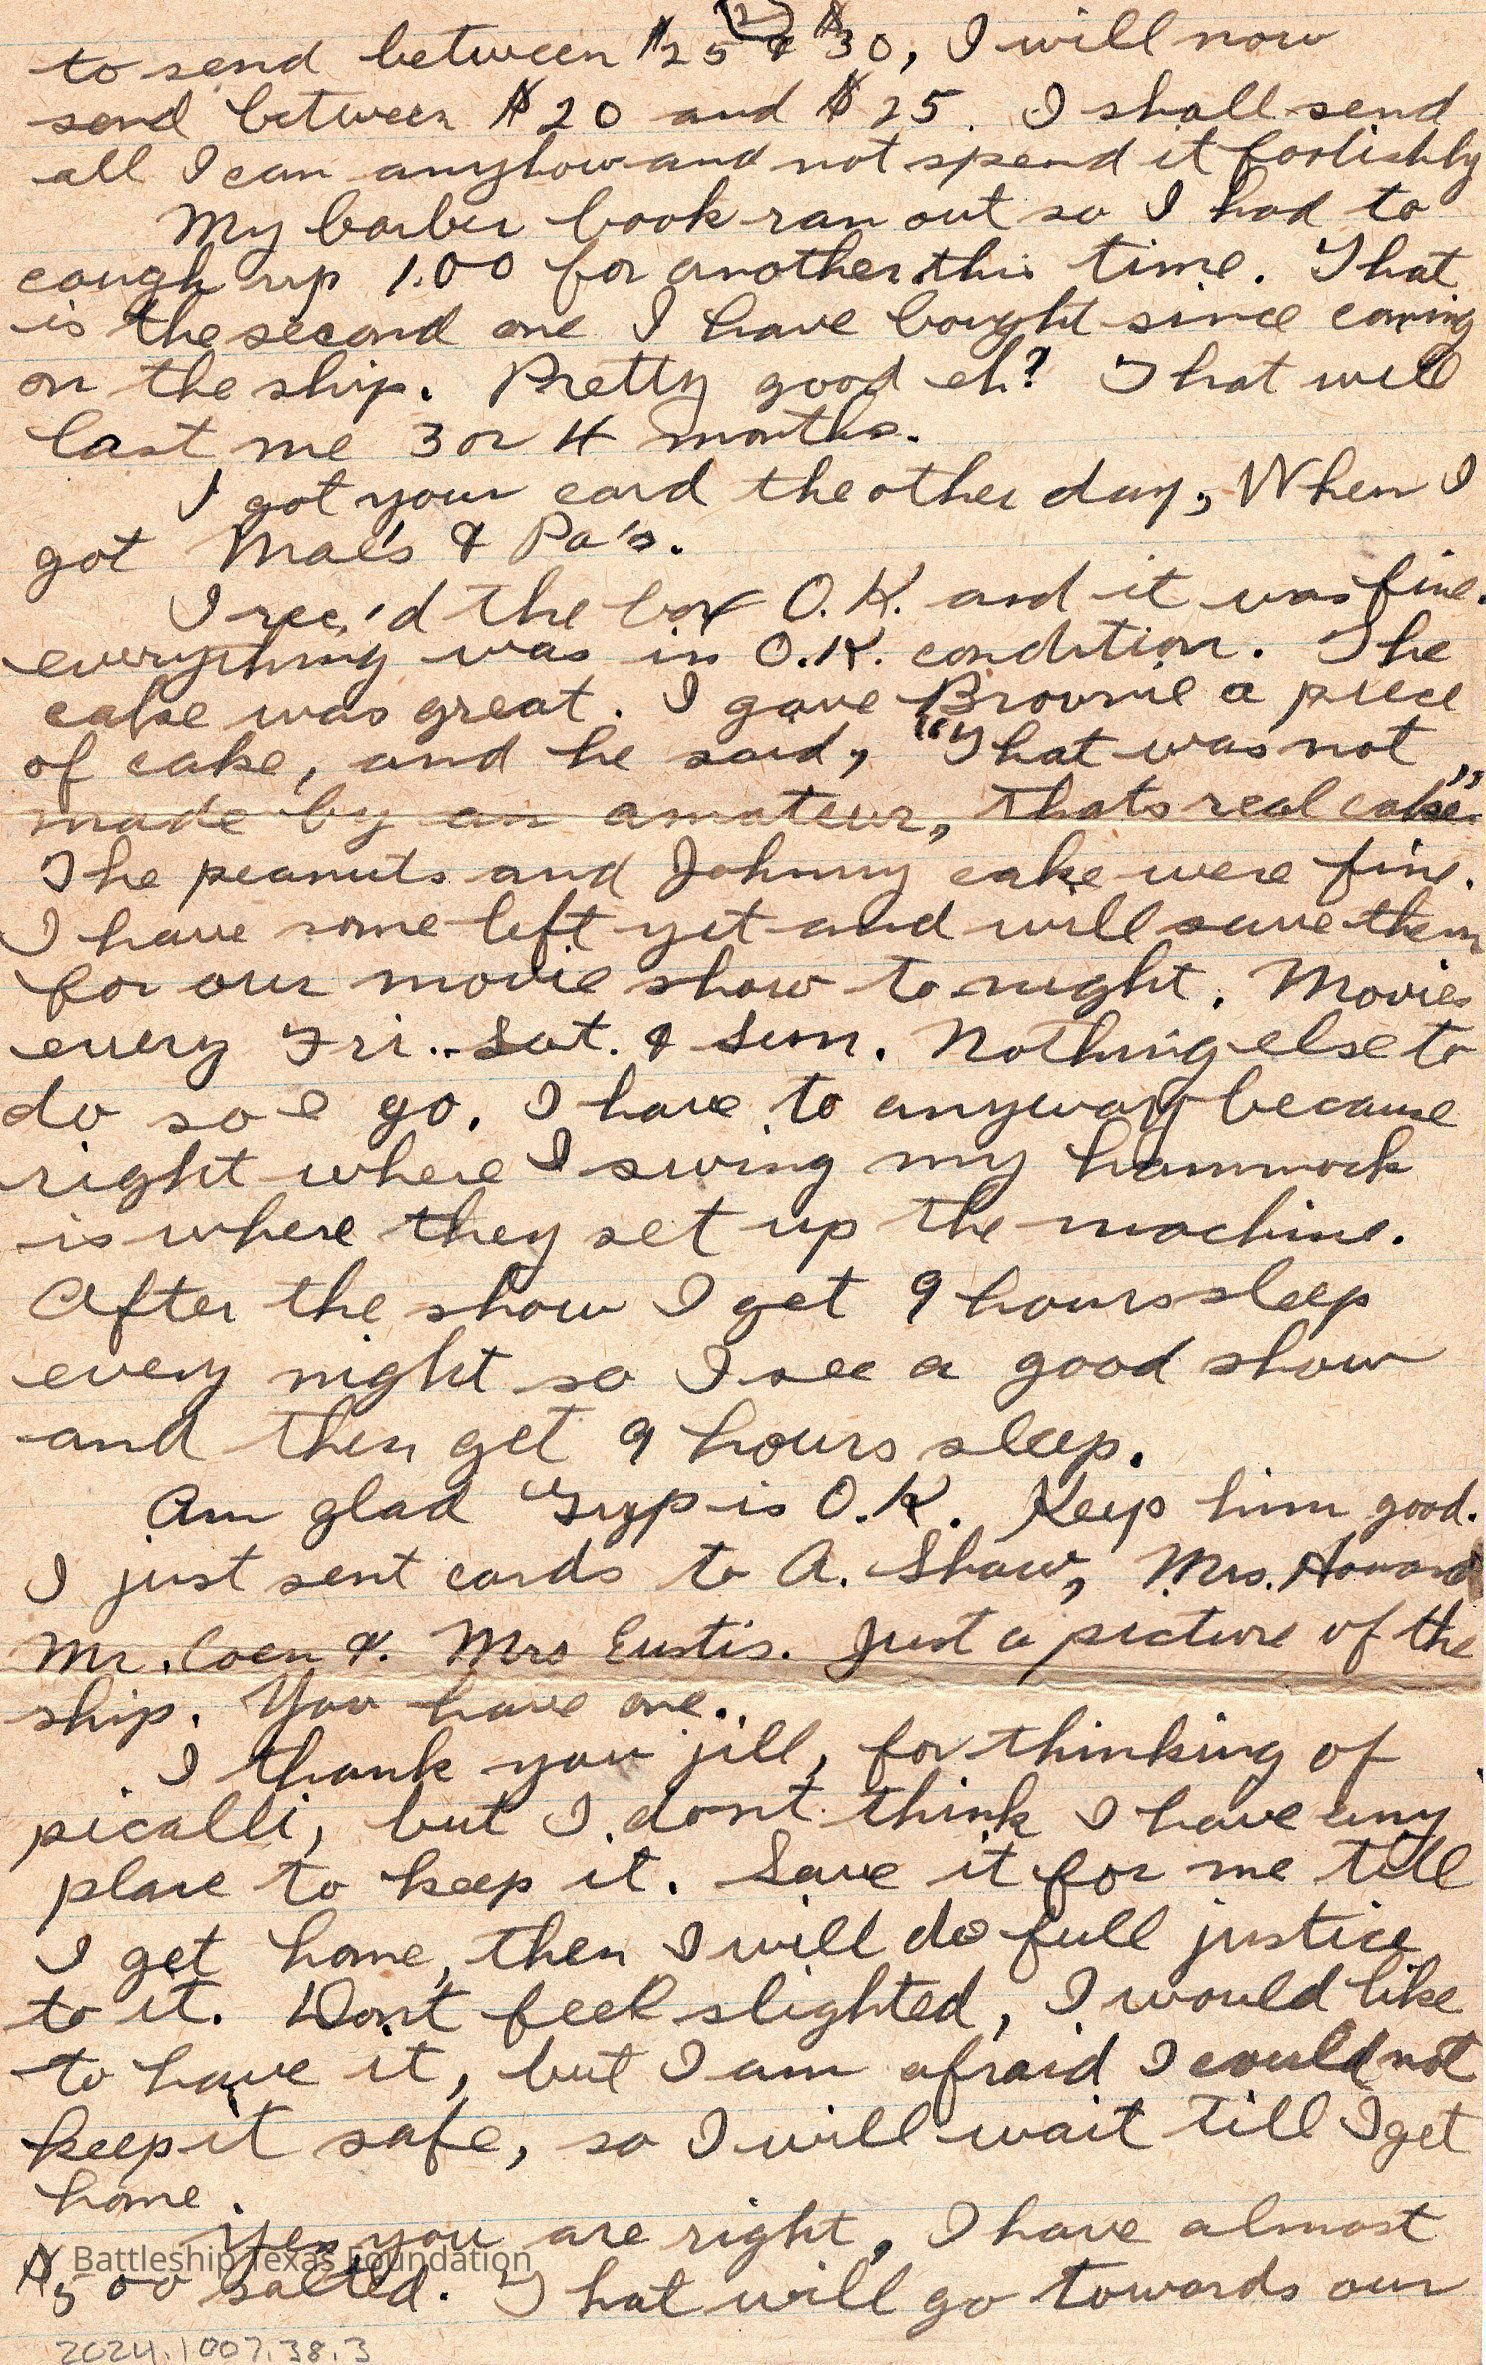 2
to send between $25 & $30, I will now
send between $20 and $25. I shall send
all I can anyhow and not spend it foolishly
My barber book ran out so I had to
cough up 1.00 for another this time. That
is the second one I have bought since coming
on the ship. Pretty good eh? That will
last me 3 or 4 months.
I got your card the other day, When I
got Mae's & Pa's.
I rec,'d the box O.K. and it was fine.
everything was in O.K. condition. The
cake was great. I gave Brownie a piece
of cake, and he said, "That was not
made by an amateur, thats real cake."
The peanuts and Johnny cake were fine.
I have some left yet and will save them
for our movie show to-night. Movies
every Fri.. Sat. & Sun. Nothing else to
do so I go. I have to anyway because
right where I swing my hammock
is where they set up the machine.
After the show I get 9 hours sleep
every night so I see a good show
and then get 9 hours sleep.
Am glad Gyp is O.K. Keep him good.
I just sent cards to A. Shaw, Mrs. Howard
Mr. Coen &. Mrs Eustis. Just a picture of the
ship. You have one..
I thank you jill, for thinking of
picalli, but I dont think I have any
place to keep it. Save it for me till
I get home, then I will do full justice
to it. Don't feel slighted, I would like
to have it, but I am afraid I could not
keep it safe, so I will wait till I get
home.
Yes you are right, I have almost
$500 salted. That will go towards our
Battleship Texas Foundation
2024.1007.38.3